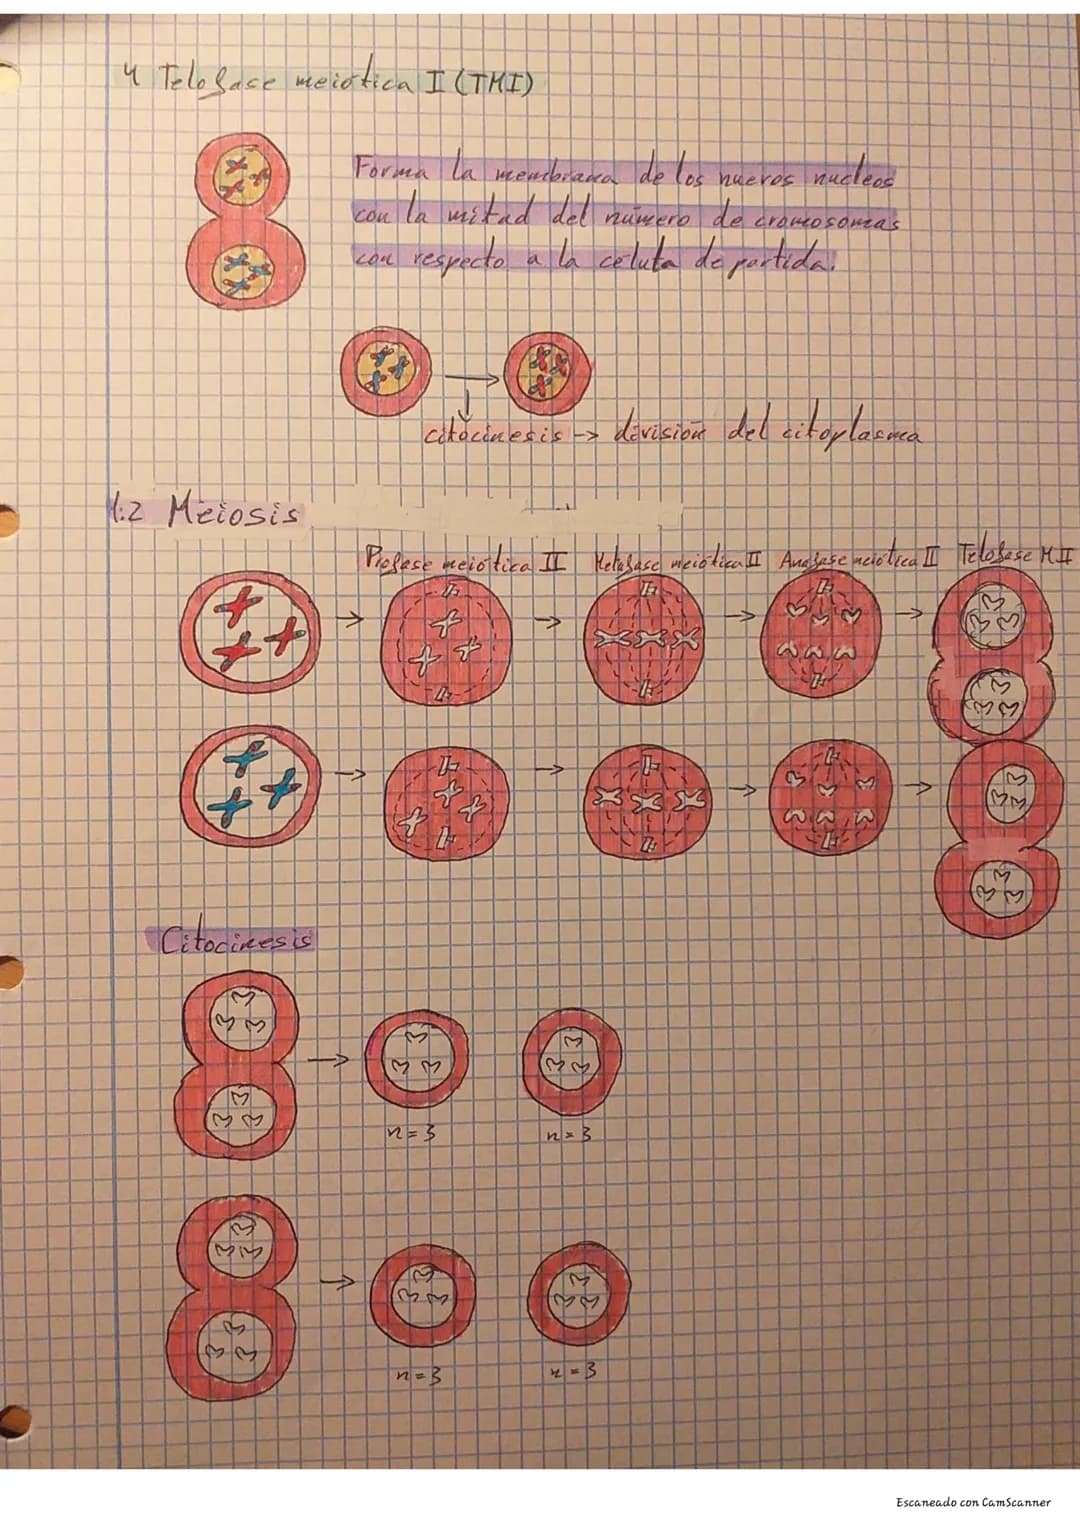 4 Telofase meiótica I (TMI)
Forma la membrana de los nuevos nucleos
con la mitad del número de cromosomas
con respecto a la celula de partida.
citocinesis -> división del citoplasma
1.2 Meiosis
Profase meiótica II Metafase meiótica II Anafase meiótica II Telofase M II
Citocinesis
n=3 n=3
n=3 n=3
Escaneado con CamScanner